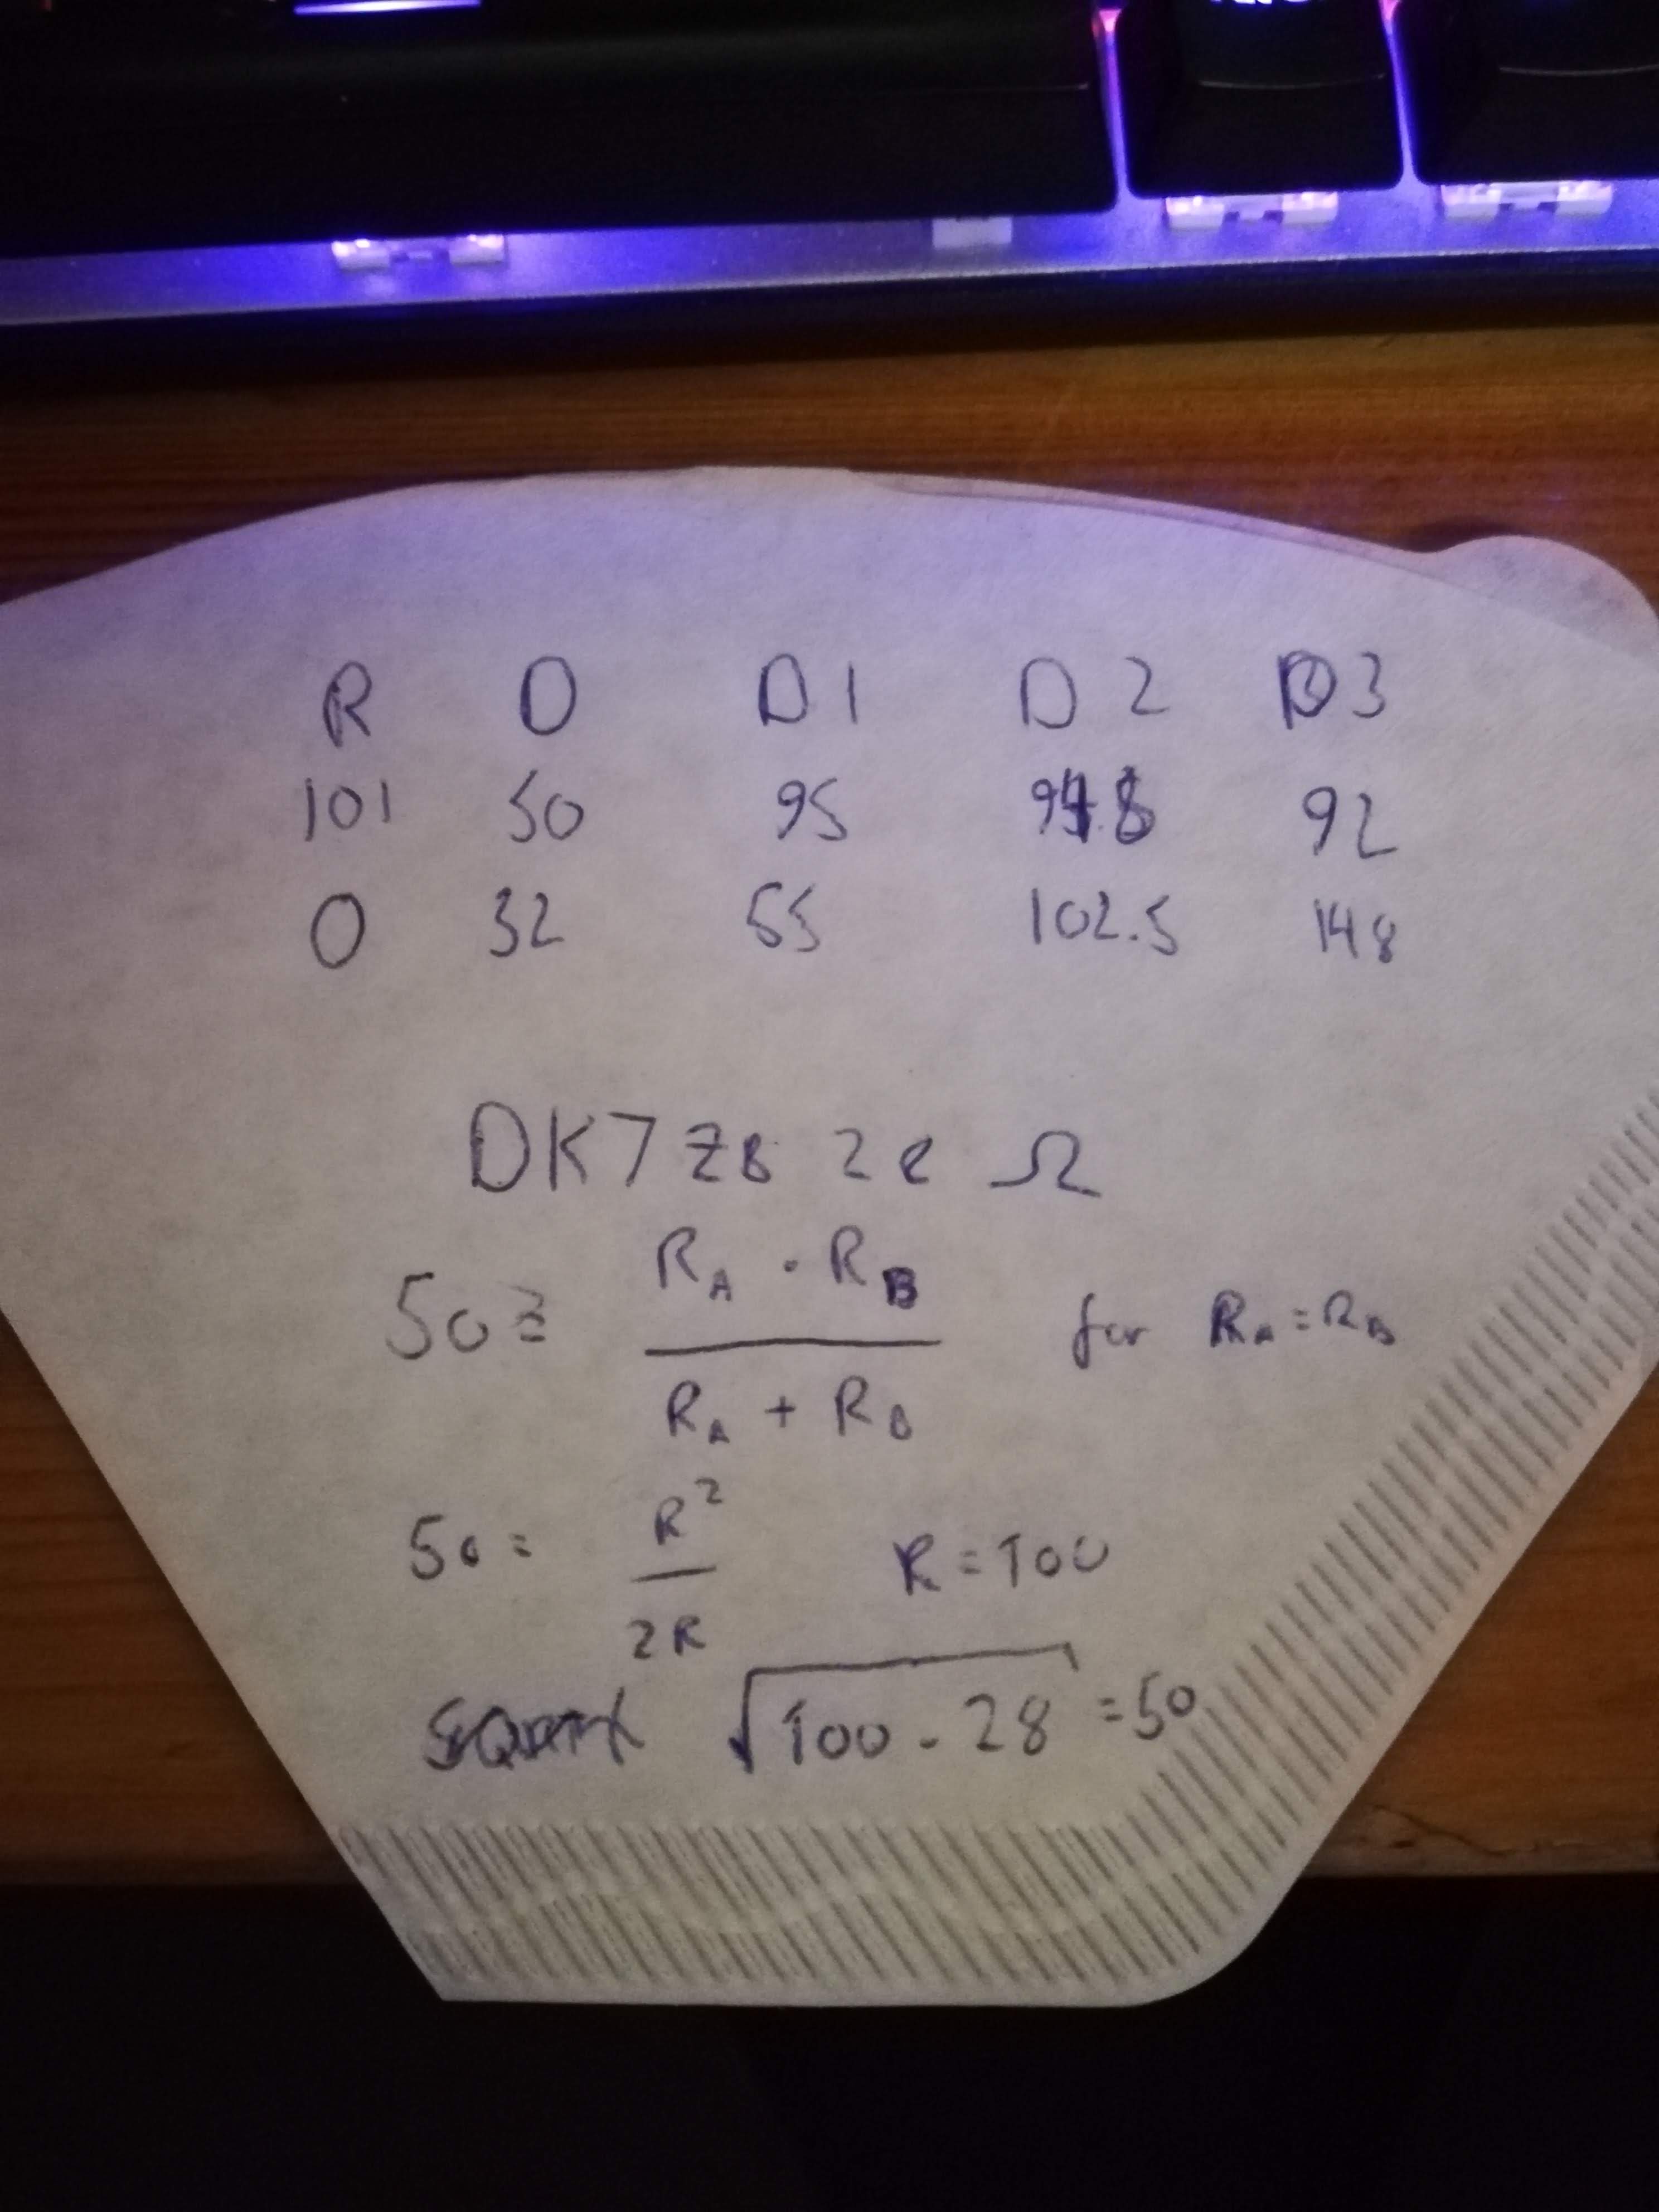 R D D1 D2 D3
101 50 95 92
0 32 55 102.5 148
DK7ZB 2e Ω
50 = R_A · R_B / R_A + R_B for R_A = R_B
50 = R² / 2R R = 100
√100 · 28 = 50